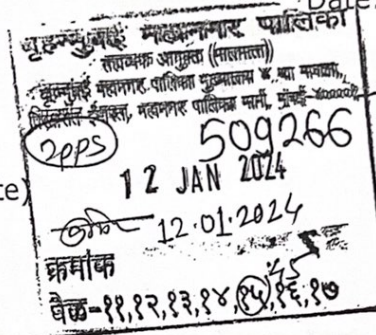 Date
बृहन्मुंबई महानगर पालिका
सहाय्यक आयुक्त (मालमत्ता)
बृहन्मुंबई महानगर पालिका मुख्यालय ४ था मजला,
इमारत, महानगर पालिका मार्ग, मुंबई-४००००१
2pps 509266
12 JAN 2024
te)
12.01.2024
क्रमांक
वेळ-११,१२,१३,१४,१५,१६,१७